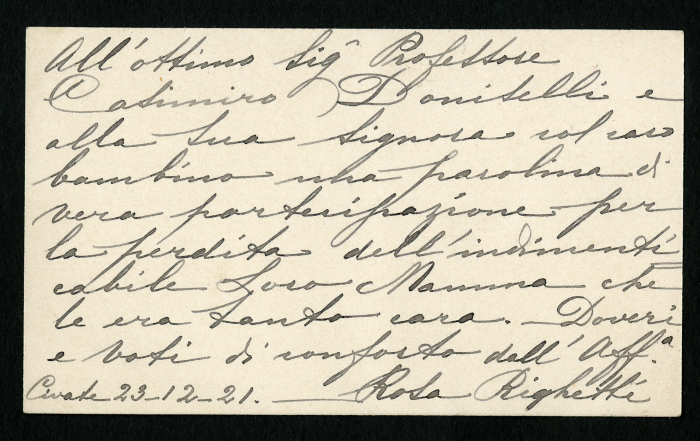 All'ottimo Sigr Professore
Casimiro Donitelli e
alla sua Signora col caro
bambino una parolina di
vera partecipazione per
la perdita dell'indimenti
cabile Loro Mamma che
le era tanto cara. – Doveri
e voti di conforto dall'Aff.a
Civate 23-12-21. – Rosa Righetti